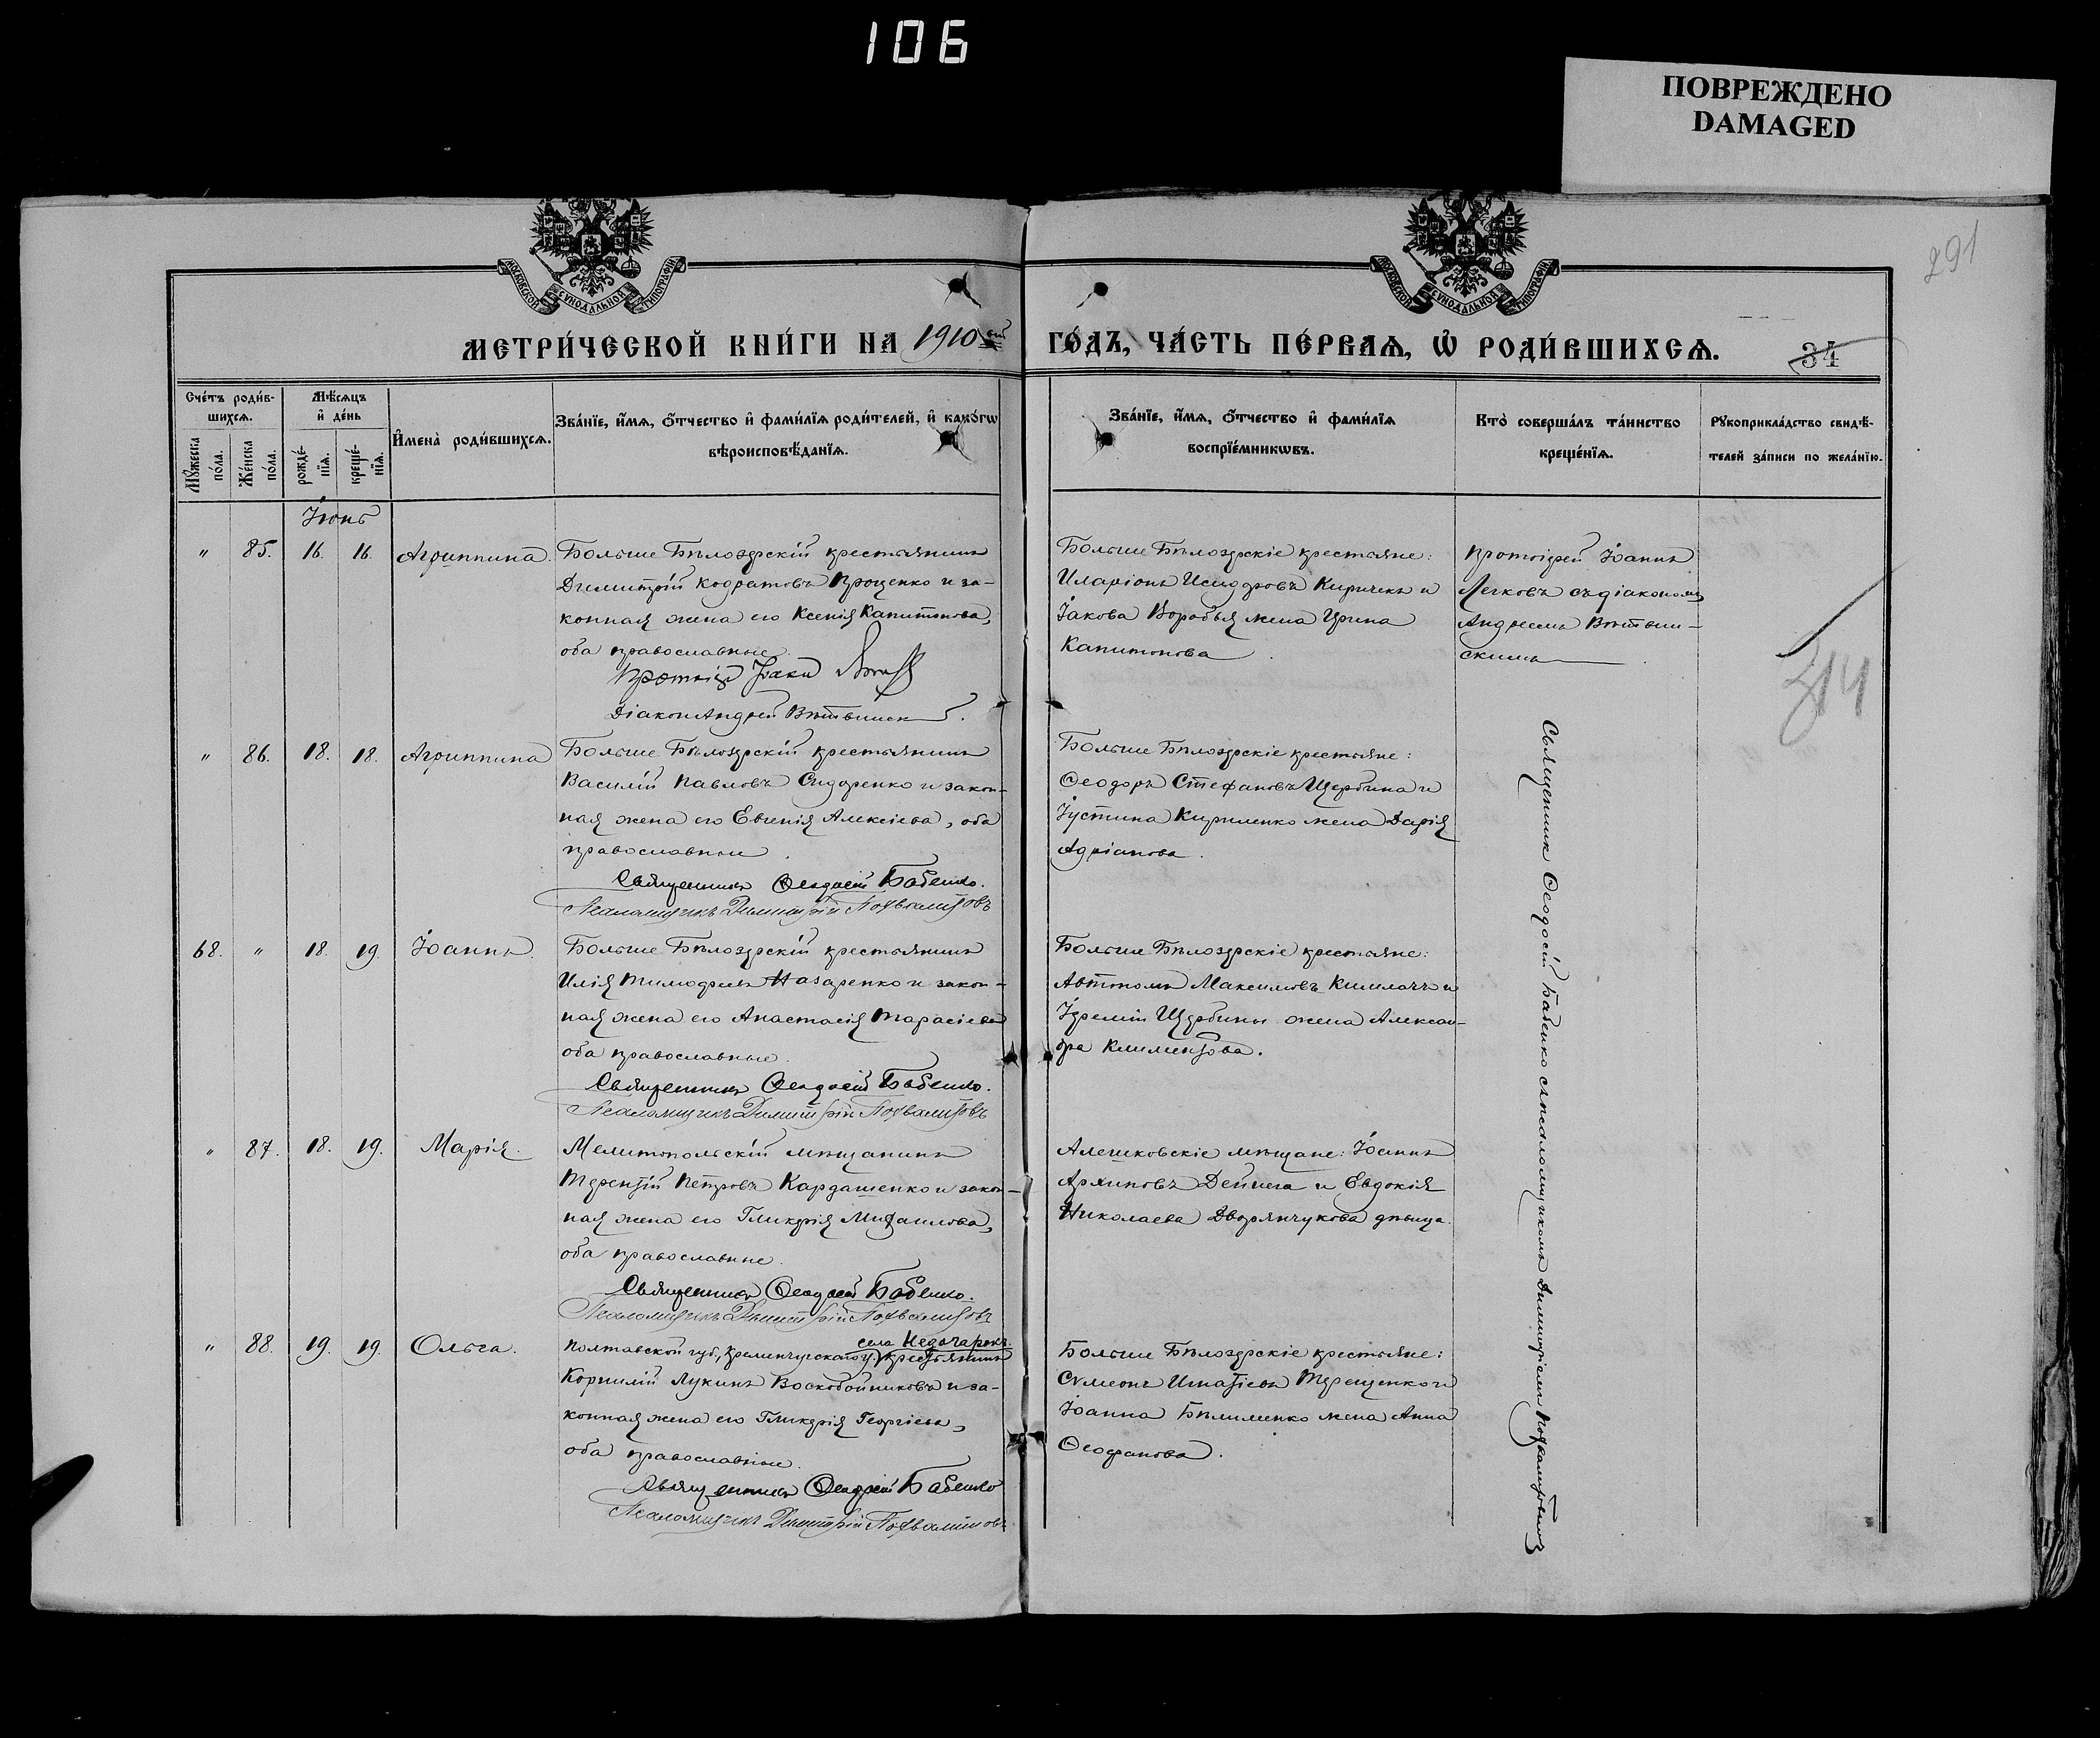 106
ПОВРЕЖДЕНО
DAMAGED
291
МОСКОВСКОЙ СѴНОДАЛЬНОЙ ТИПОГРАФІИ
МОСКОВСКОЙ СѴНОДАЛЬНОЙ ТИПОГРАФІИ
МЕТРИ́ЧЕСКОЙ КНИ́ГИ НА 1910 ый ГО́ДЪ, ЧА́СТЬ ПЕ́РВАѦ, Ѡ҆ РОДИ́ВШИХСѦ.
34
Сче́тъ роди́в-
шихсѧ.
Мꙋ́жеска по́ла.
Же́нска по́ла.
Мѣ́сѧцъ
и҆ де́нь
рожде́-
нїѧ.
креще́-
нїѧ.
И҆мена̀ роди́вшихсѧ.
Зва́нїе, и҆́мѧ, ѻ҆́тчество и҆ фами́лїѧ роди́телей, и҆ како́гѡ
вѣроисповѣ́данїѧ.
Зва́нїе, и҆́мѧ, ѻ҆́тчество и҆ фами́лїѧ
воспрїе́мникѡвъ.
Кто̀ соверша́лъ та́инство
креще́нїѧ.
Рꙋкоприкла́дство свидѣ́-
телей за́писи по жела́нїю.
Іюнь
" 85. 16. 16. Агриппина.
Больше Бѣлозерскій крестьянинъ
Димитрій Кодратовъ Проценко и за-
конная жена его Ксенія Капитонова,
оба православные.
Протоіер Іоаннъ
Діаконъ Андрей Витвинск
Больше Бѣлозерскіе крестьяне:
Иларіонъ Исидоровъ Киричекъ и
Іакова Воробья жена Ирина
Капитонова.
Протоіерей Іоаннъ
Легковъ съ діакономъ
Андреемъ Витвин-
скимъ.
314
" 86. 18. 18. Агриппина
Больше Бѣлозерскій крестьянинъ
Василій Павловъ Сидоренко и закон-
ная жена его Евгенія Алексіева, оба
православные.
Священникъ Ѳеодосій Бабенко.
Псаломщикъ Димитрій Похвалитовъ
Больше Бѣлозерскіе крестьяне:
Ѳеодоръ Стефановъ Щербина и
Іустина Кириленко жена Дарія
Адріанова.
Священникъ Ѳеодосій Бабенко съ псаломщикомъ Димитріемъ Похвалитовымъ
68. " 18. 19. Іоаннъ.
Больше Бѣлозерскій крестьянинъ
Илія Тимофеевъ Назаренко и закон-
ная жена его Анастасія Тарасіева
оба православные.
Священникъ Ѳеодосій Бабенко.
Псаломщикъ Димитрій Похвалитовъ
Больше Бѣлозерскіе крестьяне:
Автономъ Максимовъ и
Іереміи Щербины жена Алексан-
дра Климентова.
" 87. 18. 19. Марія.
Мелитопольскій мѣщанинъ
Терентій Петровъ Кардашенко и закон-
ная жена его Гликерія Михаилова,
оба православные.
Священникъ Ѳеодосій Бабенко.
Псаломщикъ Димитрій Похвалитовъ
Алешковскіе мѣщане: Іоаннъ
Архиповъ Дейнега и Евдокія
Николаева Дворянчукова дѣвица.
" 88. 19. 19. Ольга.
села Недогарокъ
Полтавской губ., Кременчугскаго у. крестьянинъ
Корнилій Лукинъ Воскобойниковъ и за-
конная жена его Гликерія Георгіева,
оба православные.
Священникъ Ѳеодосій Бабенко
Псаломщикъ Димитрій Похвалитовъ
Больше Бѣлозерскіе крестьяне:
Сѵмеонъ Игнатіевъ Терещенко и
Іоанна Бѣлименко жена Анна
Ѳеофанова.